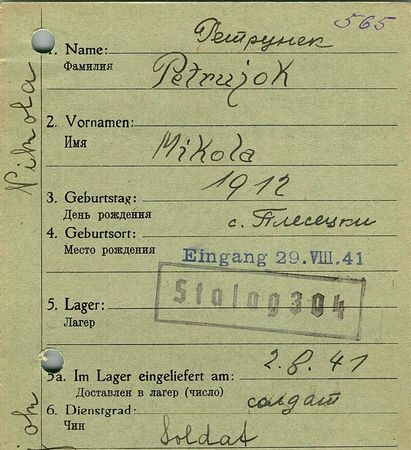 565
Петрунек
1. Name:
Фамилия
Petrujok
2. Vornamen:
Имя
Mikola
Nikola
3. Geburtstag: 1912
День рождения
с. Плесецки
4. Geburtsort:
Место рождения
Eingang 29.VIII.41
Stalag 304
5. Lager:
Лагерь
2.8.41
5a. Im Lager eingeliefert am:
Доставлен в лагерь (число)
солдат
6. Dienstgrad:
Чин
Soldat